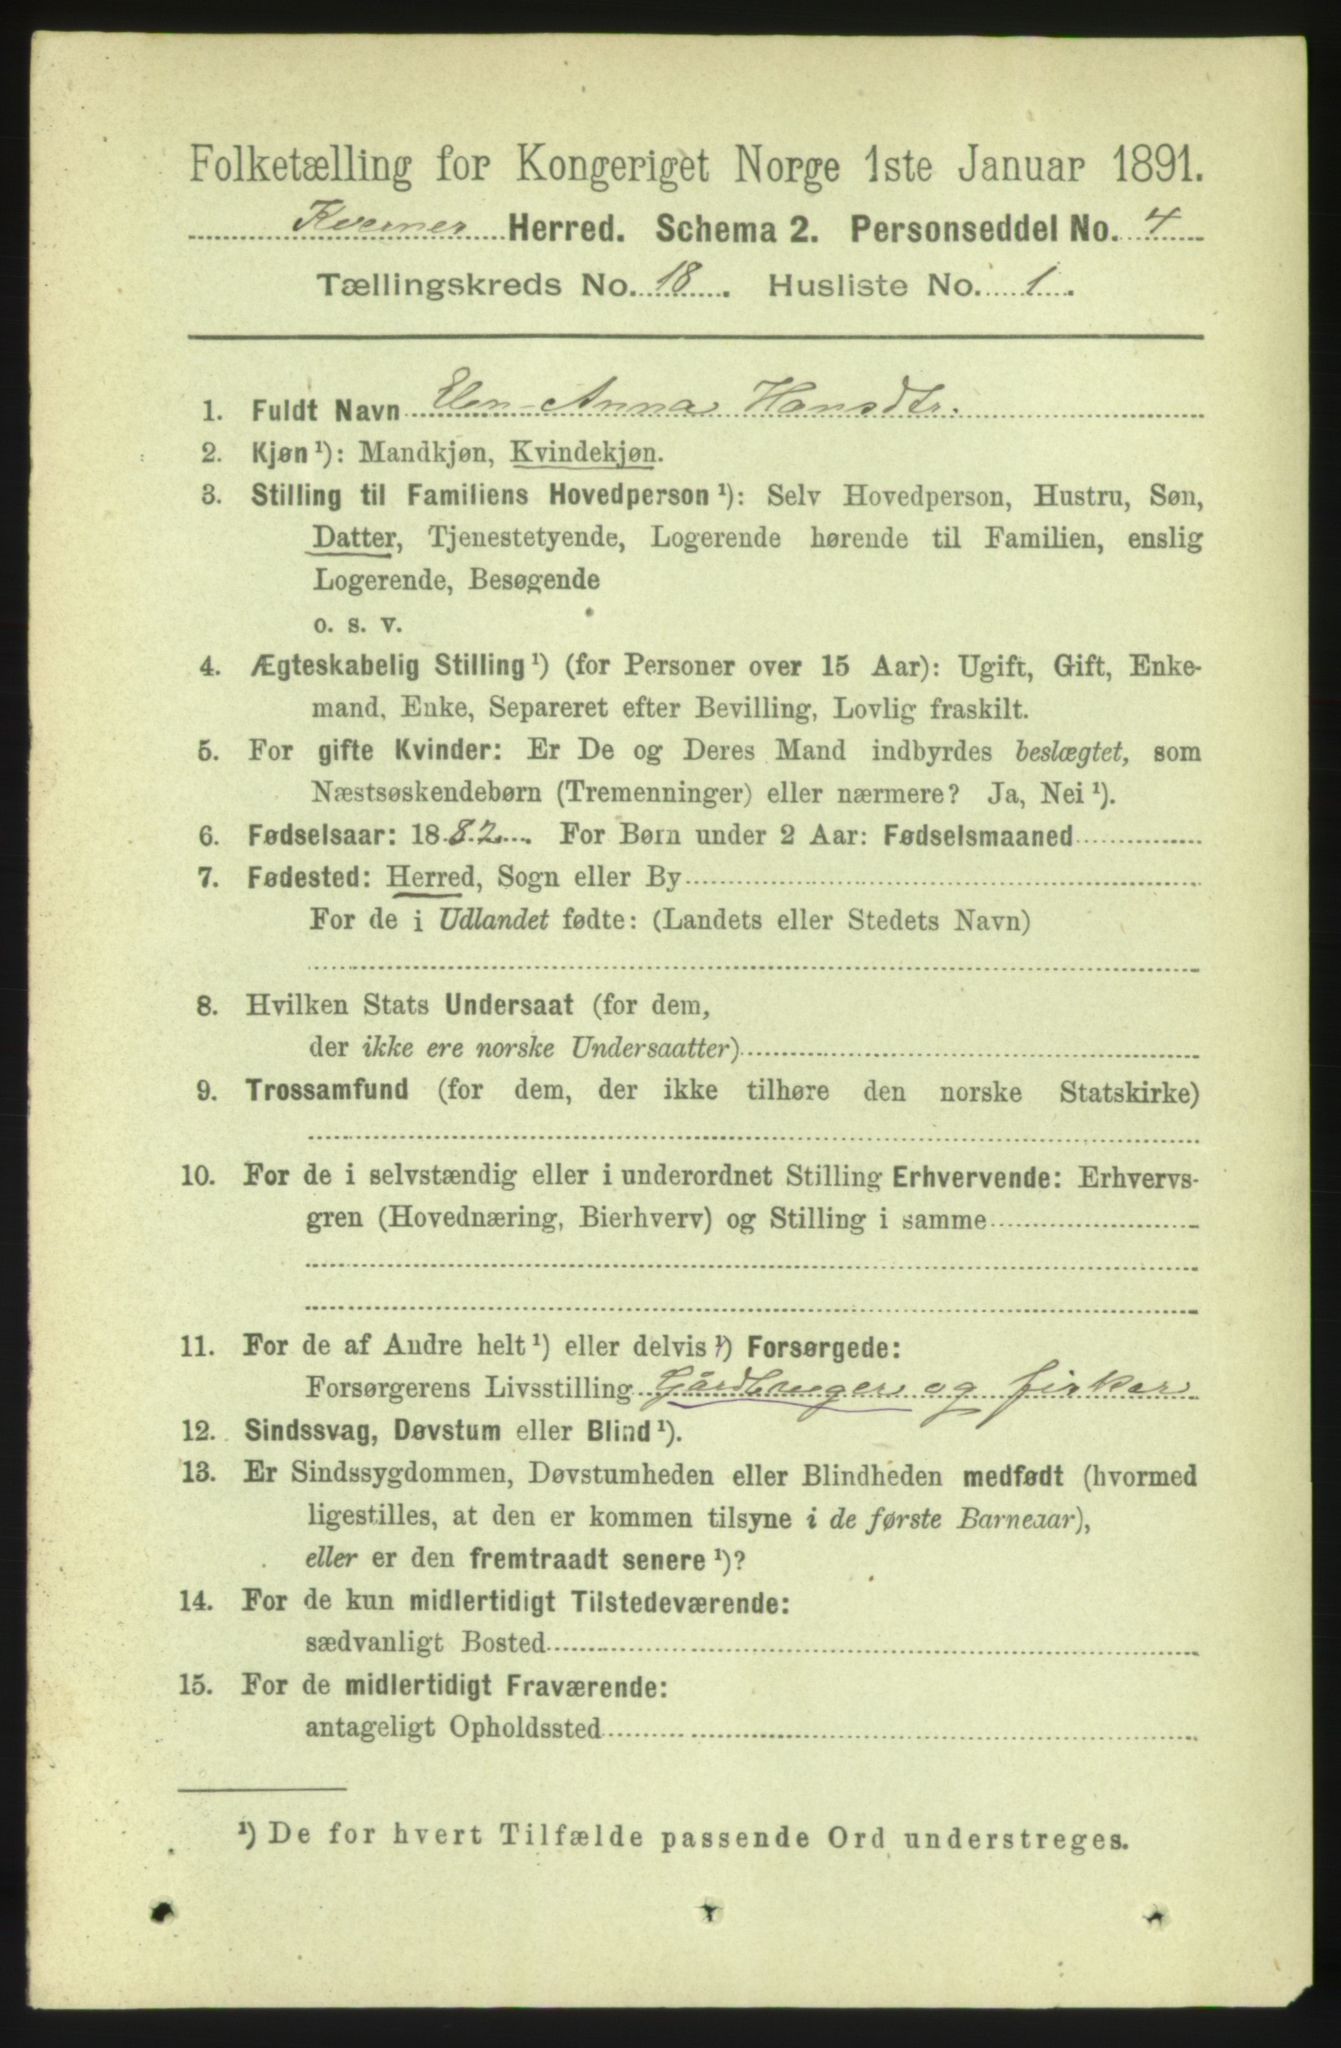 Folketælling for Kongeriget Norge 1ste Januar 1891.
Kvernes Herred. Schema 2. Personseddel No. 4
Tællingskreds No. 18. Husliste No. 1.
1. Fuldt Navn Elen-Anna Hansdtr.
2. Kjøn¹): Mandkjøn, Kvindekjøn.
3. Stilling til Familiens Hovedperson¹): Selv Hovedperson, Hustru, Søn,
Datter, Tjenestetyende, Logerende hørende til Familien, enslig
Logerende, Besøgende
o. s. v.
4. Ægteskabelig Stilling¹) (for Personer over 15 Aar): Ugift, Gift, Enke-
mand, Enke, Separeret efter Bevilling, Lovlig fraskilt.
5. For gifte Kvinder: Er De og Deres Mand indbyrdes beslægtet, som
Næstsøskendebørn (Tremenninger) eller nærmere? Ja, Nei¹).
6. Fødselsaar: 1882. For Børn under 2 Aar: Fødselsmaaned
7. Fødested: Herred, Sogn eller By
For de i Udlandet fødte: (Landets eller Stedets Navn)
8. Hvilken Stats Undersaat (for dem,
der ikke ere norske Undersaatter)
9. Trossamfund (for dem, der ikke tilhøre den norske Statskirke)
10. For de i selvstændig eller i underordnet Stilling Erhvervende: Erhvervs-
gren (Hovednæring, Bierhverv) og Stilling i samme
11. For de af Andre helt¹) eller delvis¹) Forsørgede:
Forsørgerens Livsstilling Gårdbruger og fisker
12. Sindssvag, Døvstum eller Blind¹).
13. Er Sindssygdommen, Døvstumheden eller Blindheden medfødt (hvormed
ligestilles, at den er kommen tilsyne i de første Barneaar),
eller er den fremtraadt senere¹)?
14. For de kun midlertidigt Tilstedeværende:
sædvanligt Bosted
15. For de midlertidigt Fraværende:
antageligt Opholdssted
¹) De for hvert Tilfælde passende Ord understreges.